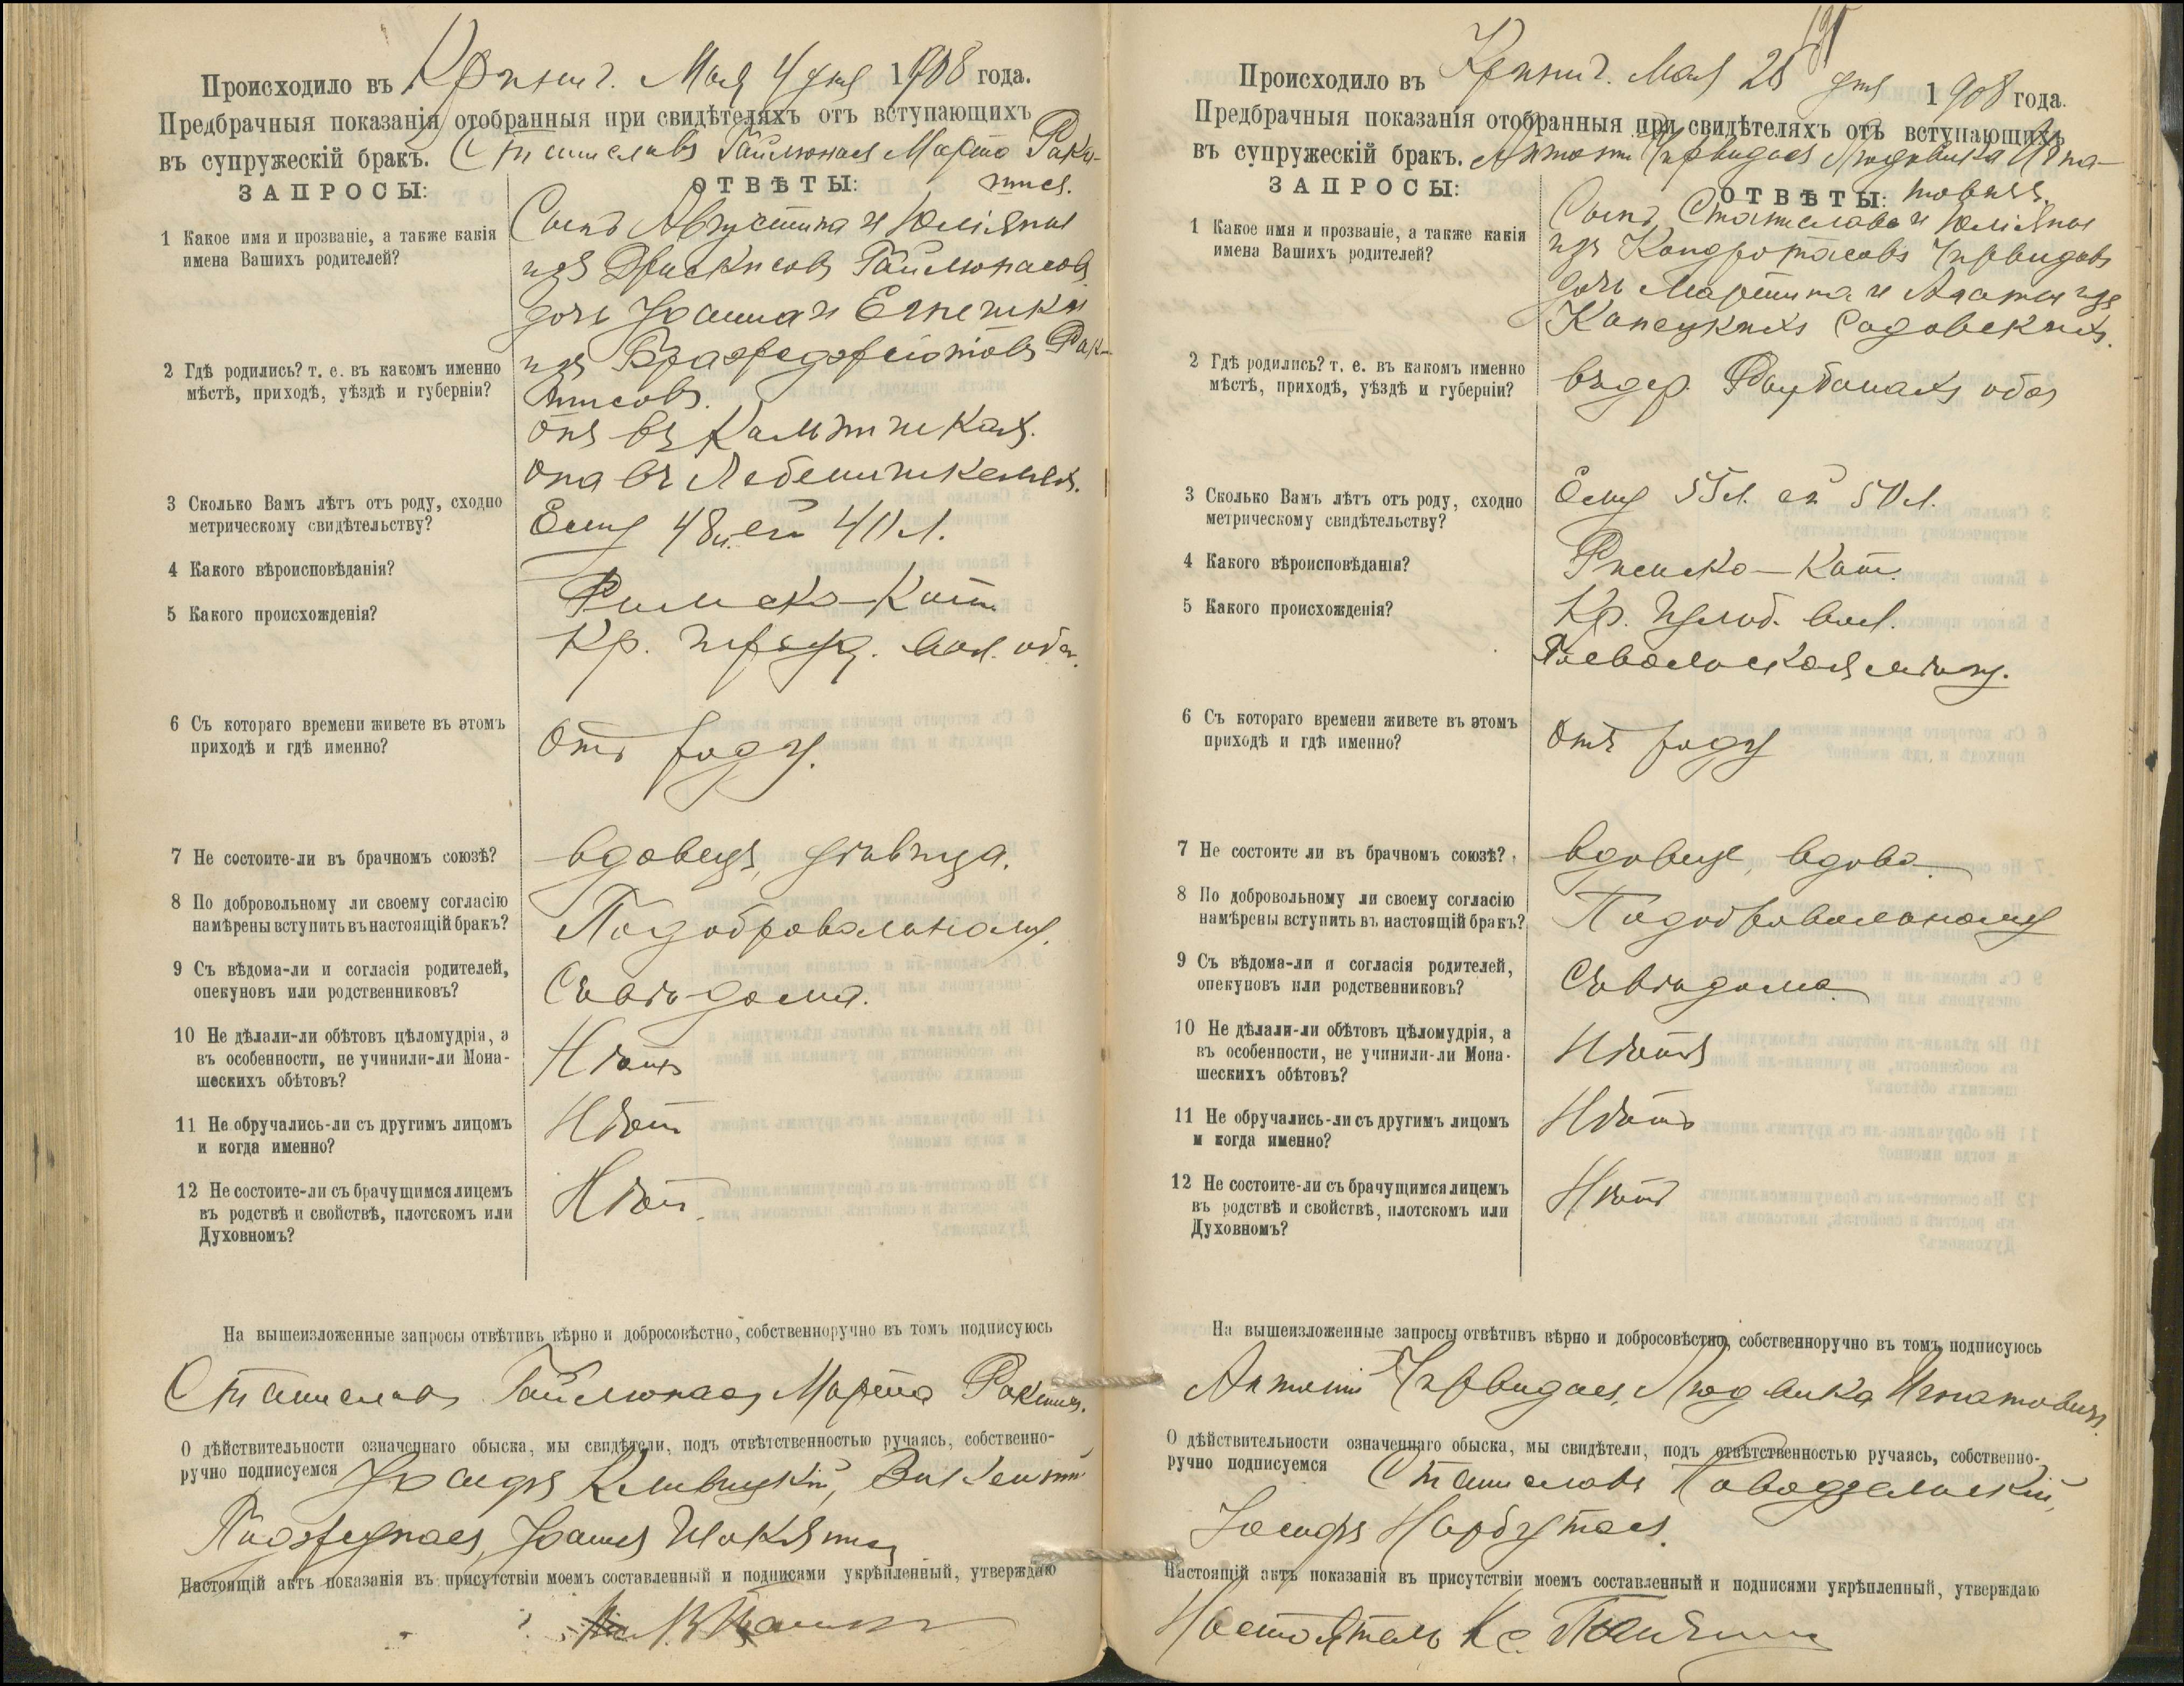 Происходило въ Мая 4 дня 1908 года.
Предбрачныя показанія отобранныя при свидѣтеляхъ отъ вступающихъ
въ супружескій бракъ. Станиславъ Гайлюнасъ Марта
ЗАПРОСЫ:
ОТВѢТЫ:
1 Какое имя и прозваніе, а также какія
имена Вашихъ родителей?
Сынъ Августина и Юліяны
изъ Гайлюнасовъ
дочь Іоанна и
изъ
2 Гдѣ родились? т. е. въ какомъ именно
мѣстѣ, приходѣ, уѣздѣ и губерніи?
онъ въ
она въ
3 Сколько Вамъ лѣтъ отъ роду, сходно
метрическому свидѣтельству?
Ему 48 л. ей 40 л.
4 Какого вѣроисповѣданія?
Римско-Кат.
5 Какого происхожденія?
Кр. вол. оба.
6 Съ котораго времени живете въ этомъ
приходѣ и гдѣ именно?
Отъ роду.
7 Не состоите-ли въ брачномъ союзѣ?
вдовецъ, дѣвица.
8 По добровольному ли своему согласію
намѣрены вступить въ настоящій бракъ?
По добровольному.
9 Съ вѣдома-ли и согласія родителей,
опекуновъ или родственниковъ?
Съ вѣдома.
10 Не дѣлали-ли обѣтовъ цѣломудрія, а
въ особенности, не учинили-ли Мона-
шескихъ обѣтовъ?
Нѣтъ
11 Не обручались-ли съ другимъ лицомъ
и когда именно?
Нѣтъ
12 Не состоите-ли съ брачущимся лицемъ
въ родствѣ и свойствѣ, плотскомъ или
Духовномъ?
Нѣтъ.
На вышеизложенные запросы отвѣтивъ вѣрно и добросовѣстно, собственноручно въ томъ подписуюсь
Станиславъ Гайлюнасъ, Марта
О дѣйствительности означеннаго обыска, мы свидѣтели, подъ отвѣтственностью ручаясь, собственно-
ручно подписуемся
Іоаннъ
Настоящій актъ показанія въ присутствіи моемъ составленный и подписами укрѣпленный, утверждаю
Происходило въ Мая дня 1908 года.
Предбрачныя показанія отобранныя при свидѣтеляхъ отъ вступающихъ
въ супружескій бракъ. Антоній Людвика Игна-
ЗАПРОСЫ:
ОТВѢТЫ: товичъ.
1 Какое имя и прозваніе, а также какія
имена Вашихъ родителей?
Сынъ Станислава и Юліяны
изъ Кондротасовъ
дочь Мартина и изъ
Садовскихъ.
2 Гдѣ родились? т. е. въ какомъ именно
мѣстѣ, приходѣ, уѣздѣ и губерніи?
въ дер. оба
3 Сколько Вамъ лѣтъ отъ роду, сходно
метрическому свидѣтельству?
Ему 55 л. ей 50 л.
4 Какого вѣроисповѣданія?
Римско-Кат.
5 Какого происхожденія?
Кр. вол.
6 Съ котораго времени живете въ этомъ
приходѣ и гдѣ именно?
Отъ роду
7 Не состоите ли въ брачномъ союзѣ?
вдовецъ, вдова.
8 По добровольному ли своему согласію
намѣрены вступить въ настоящій бракъ?
По добровольному
9 Съ вѣдома-ли и согласія родителей,
опекуновъ или родственниковъ?
Съ вѣдома.
10 Не дѣлали-ли обѣтовъ цѣломудрія, а
въ особенности, не учинили-ли Мона-
шескихъ обѣтовъ?
Нѣтъ
11 Не обручались-ли съ другимъ лицомъ
и когда именно?
Нѣтъ
12 Не состоите-ли съ брачущимся лицемъ
въ родствѣ и свойствѣ, плотскомъ или
Духовномъ?
Нѣтъ
На вышеизложенные запросы отвѣтивъ вѣрно и добросовѣстно, собственноручно въ томъ подписуюсь
Антоній Людвика Игнатовичъ.
О дѣйствительности означеннаго обыска, мы свидѣтели, подъ отвѣтственностью ручаясь, собственно-
ручно подписуемся Станиславъ
Іосифъ Нарбутасъ.
Настоящій актъ показанія въ присутствіи моемъ составленный и подписями укрѣпленный, утверждаю
Настоятель Кс.